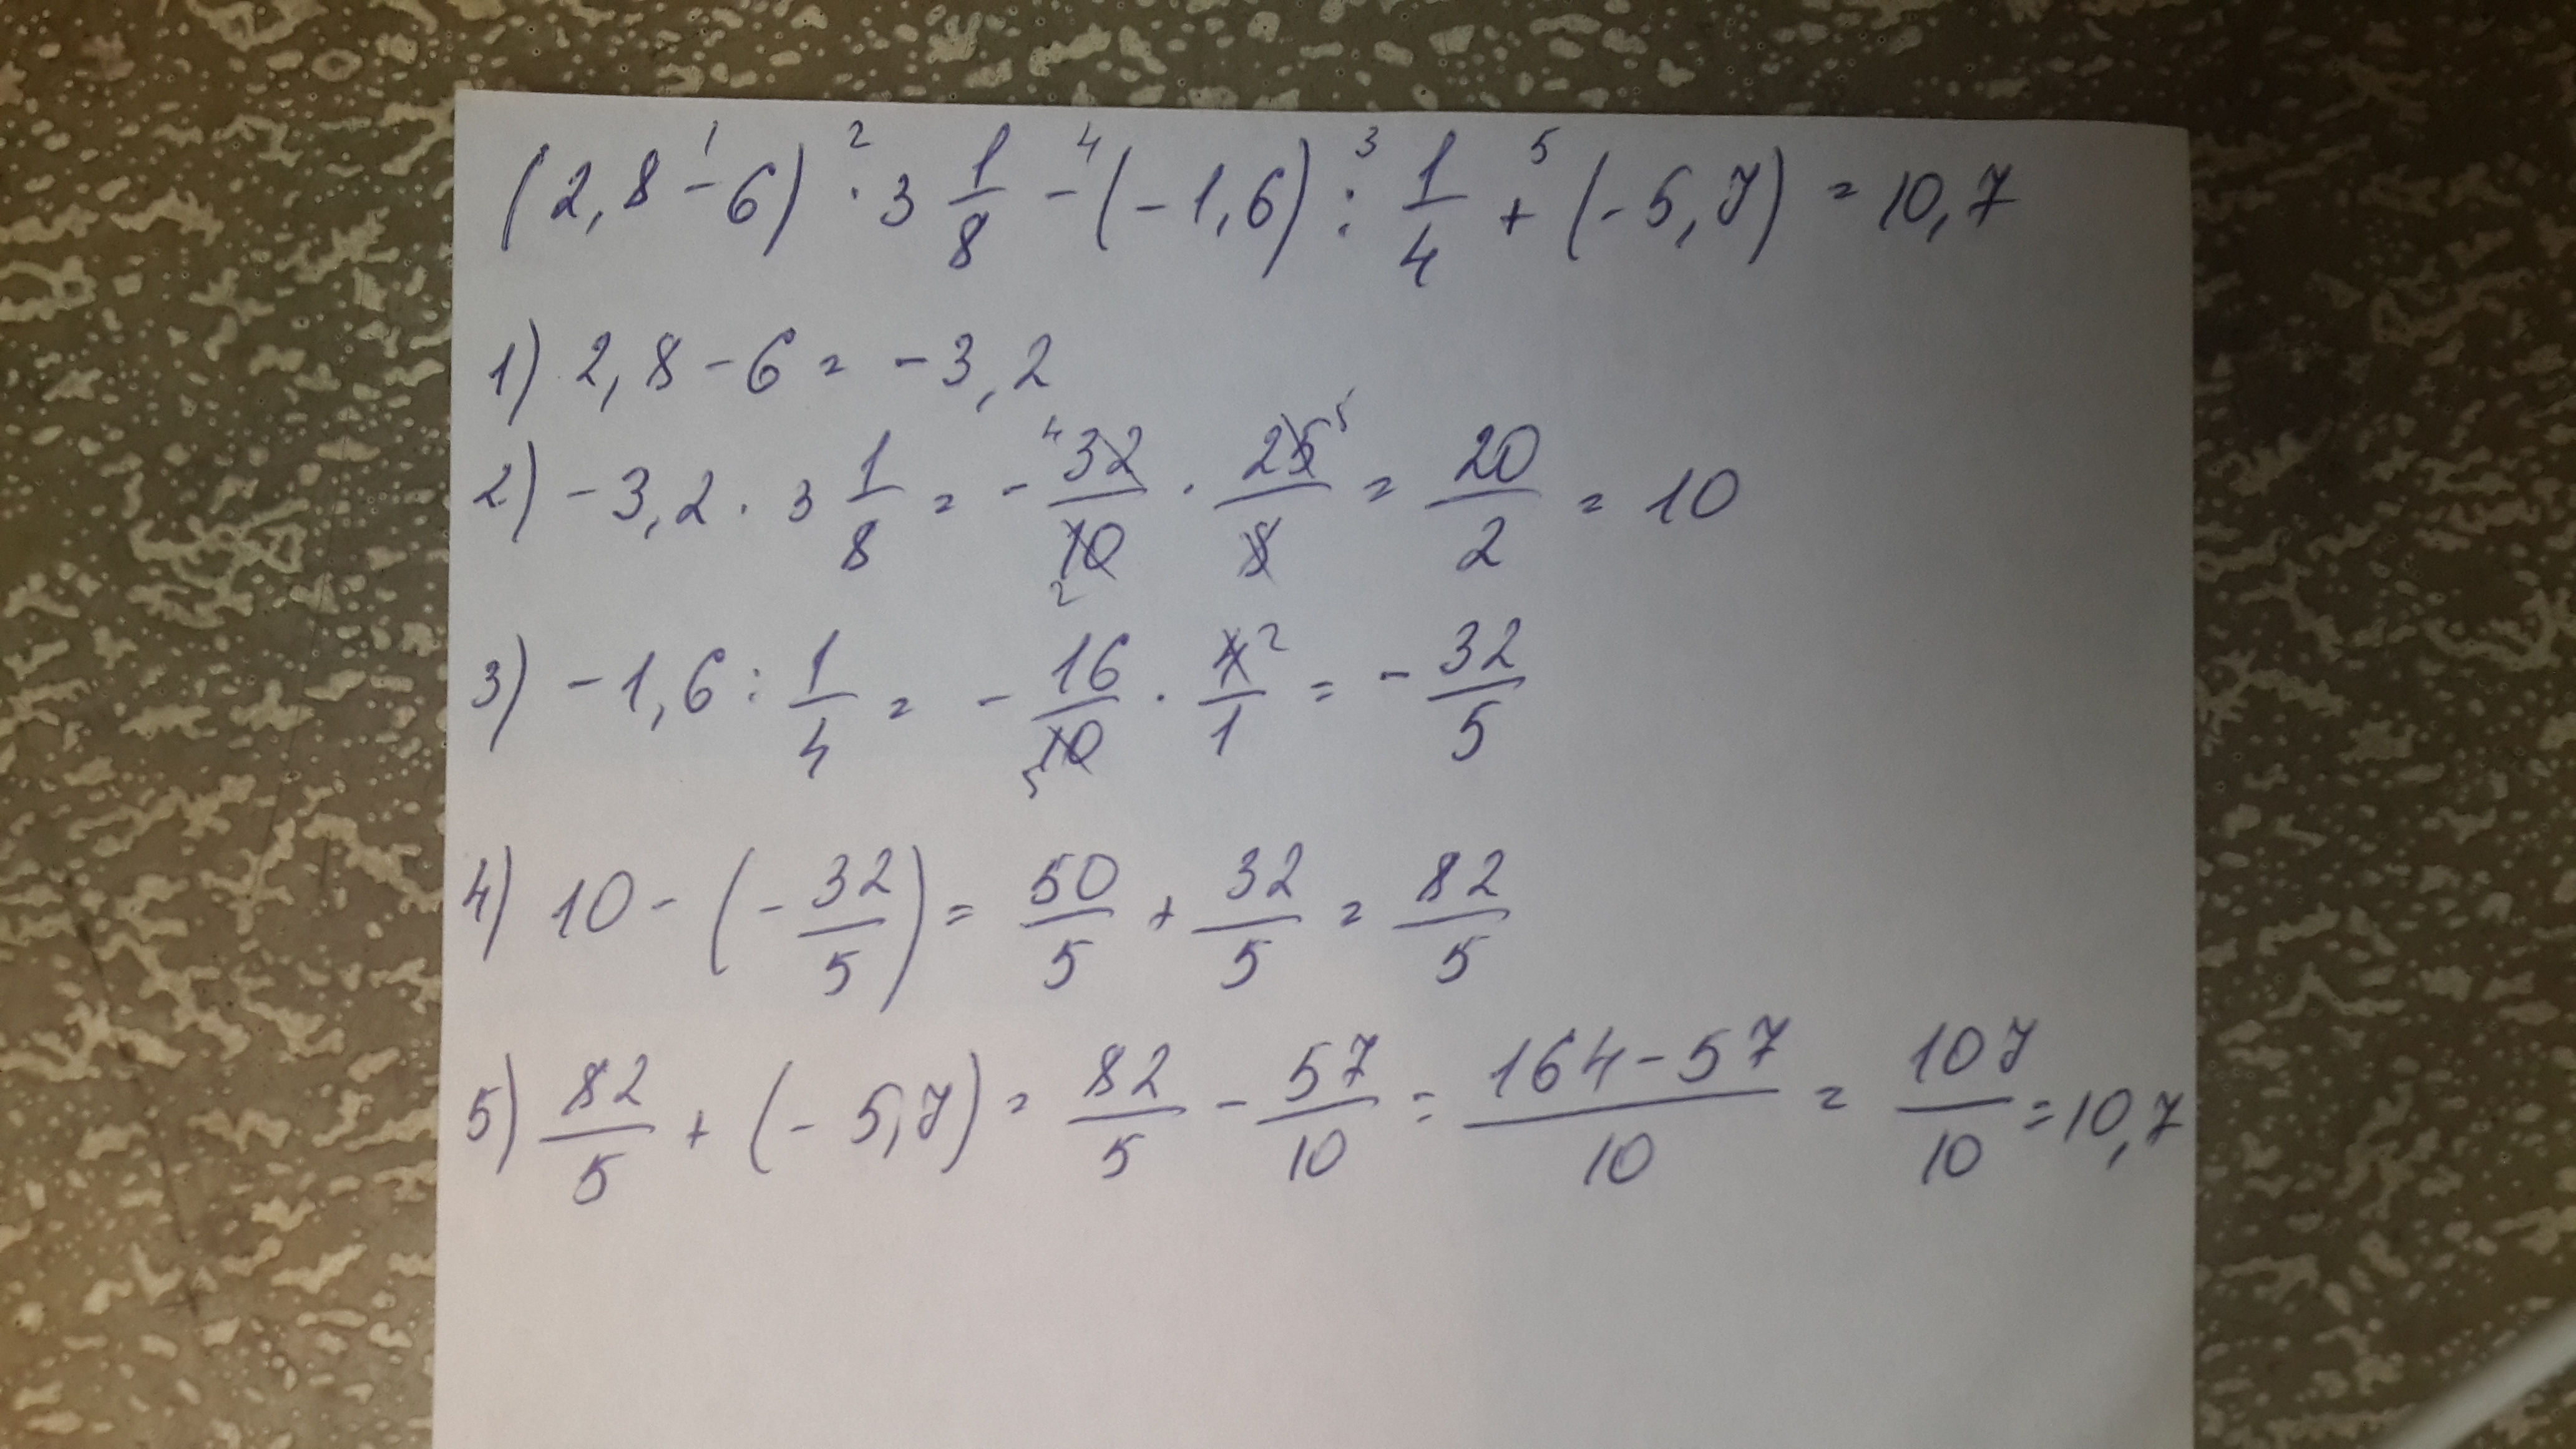 (2,8 - 6) · 3 1/8 - (-1,6) : 1/4 + (-5,7) = 10,7
1) 2,8 - 6 = -3,2
2) -3,2 · 3 1/8 = - 32/10 · 25/8 = 20/2 = 10
3) -1,6 : 1/4 = - 16/10 · 4/1 = - 32/5
4) 10 - (- 32/5) = 50/5 + 32/5 = 82/5
5) 82/5 + (- 5,7) = 82/5 - 57/10 = 164-57/10 = 107/10 = 10,7